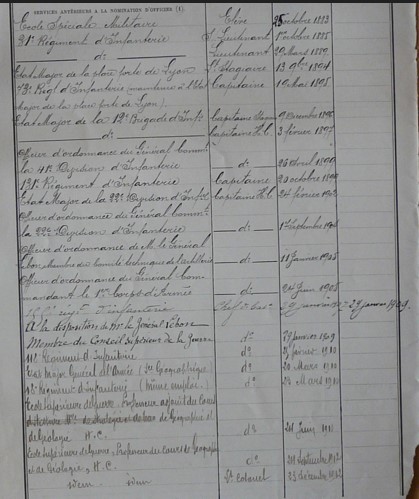 SERVICES ANTÉRIEURS A LA NOMINATION D'OFFICIER (1).
Ecole Spéciale Militaire Elève 25 octobre 1883
31e Régiment d'Infanterie S. Lieutenant 1er octobre 1885
do Lieutenant 29 Mars 1889
Etat Major de la place forte de Lyon Lt Stagiaire 13 9bre 1894
Régt d'Infanterie (maintenu à l'Etat Capitaine 19 Mai 1895
Major de la place forte de Lyon)
Etat Major de la Brigade d'Infie Capitaine
do Capitaine H.C. 3 février 1897
Officier d'ordonnance du Général Commt
la 41e Division d'Infanterie do 26 Avril
131e Régiment d'Infanterie Capitaine 25 octobre
Etat Major de la 22e Division d'Infie Capitaine H.C. 24 février
Officier d'ordonnance du Général Commt
la 22e Division d'Infanterie do 1er Septembre
Officier d'ordonnance de Mr le Général
Lebon, Membre du Comité technique de l'artillerie do 11 Janvier 1905
Officier d'ordonnance du Général Com-
mandant le 1er Corps d'Armée do 24 Juin 1905
d'infanterie Chef de Bat. 29 janvier 1909
A la disposition de Mr le Général Lebon
Membre du Conseil Supérieur de la Guerre do Janvier 1909
Régiment d'Infanterie do Janvier 1910
Etat Major Général de l'Armée (Sce Géographique) do 20 Mars 1910
Régiment d'Infanterie (même emploi) do Mars 1910
Ecole Supérieure de Guerre, Professeur adjoint du Cours
de Géographie et
de Géologie H.C. do Juin 1911
Ecole Supérieure de Guerre, Professeur du Cours de Géographie
et de Géologie, H.C. do Septembre 1912
idem idem Lt Colonel 23 Décembre 1912